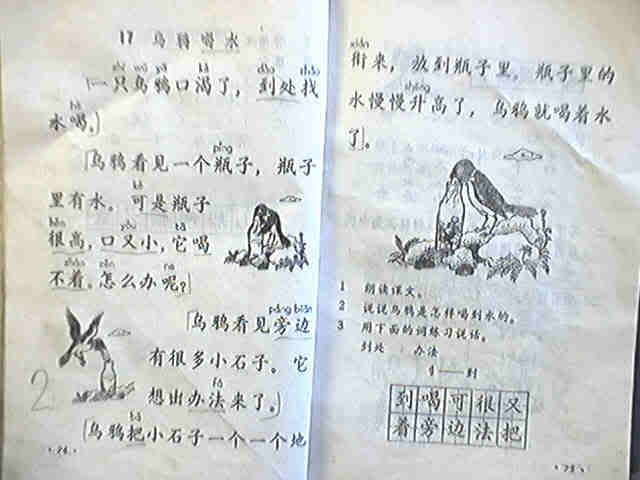 17 乌鸦喝水
一只乌鸦口渴了，到处找
水喝。
乌鸦看见一个瓶子，瓶子
里有水。可是瓶子
很高，口又小，它喝
不着。怎么办呢？
乌鸦看见旁边
有很多小石子。它
想出办法来了。
乌鸦把小石子一个一个地
2
衔来，放到瓶子里。瓶子里的
水慢慢升高了，乌鸦就喝着水
了。
1 朗读课文。
2 说说乌鸦是怎样喝到水的。
3 用下面的词练习说话。
到处 办法
到喝可很又
着旁边法把